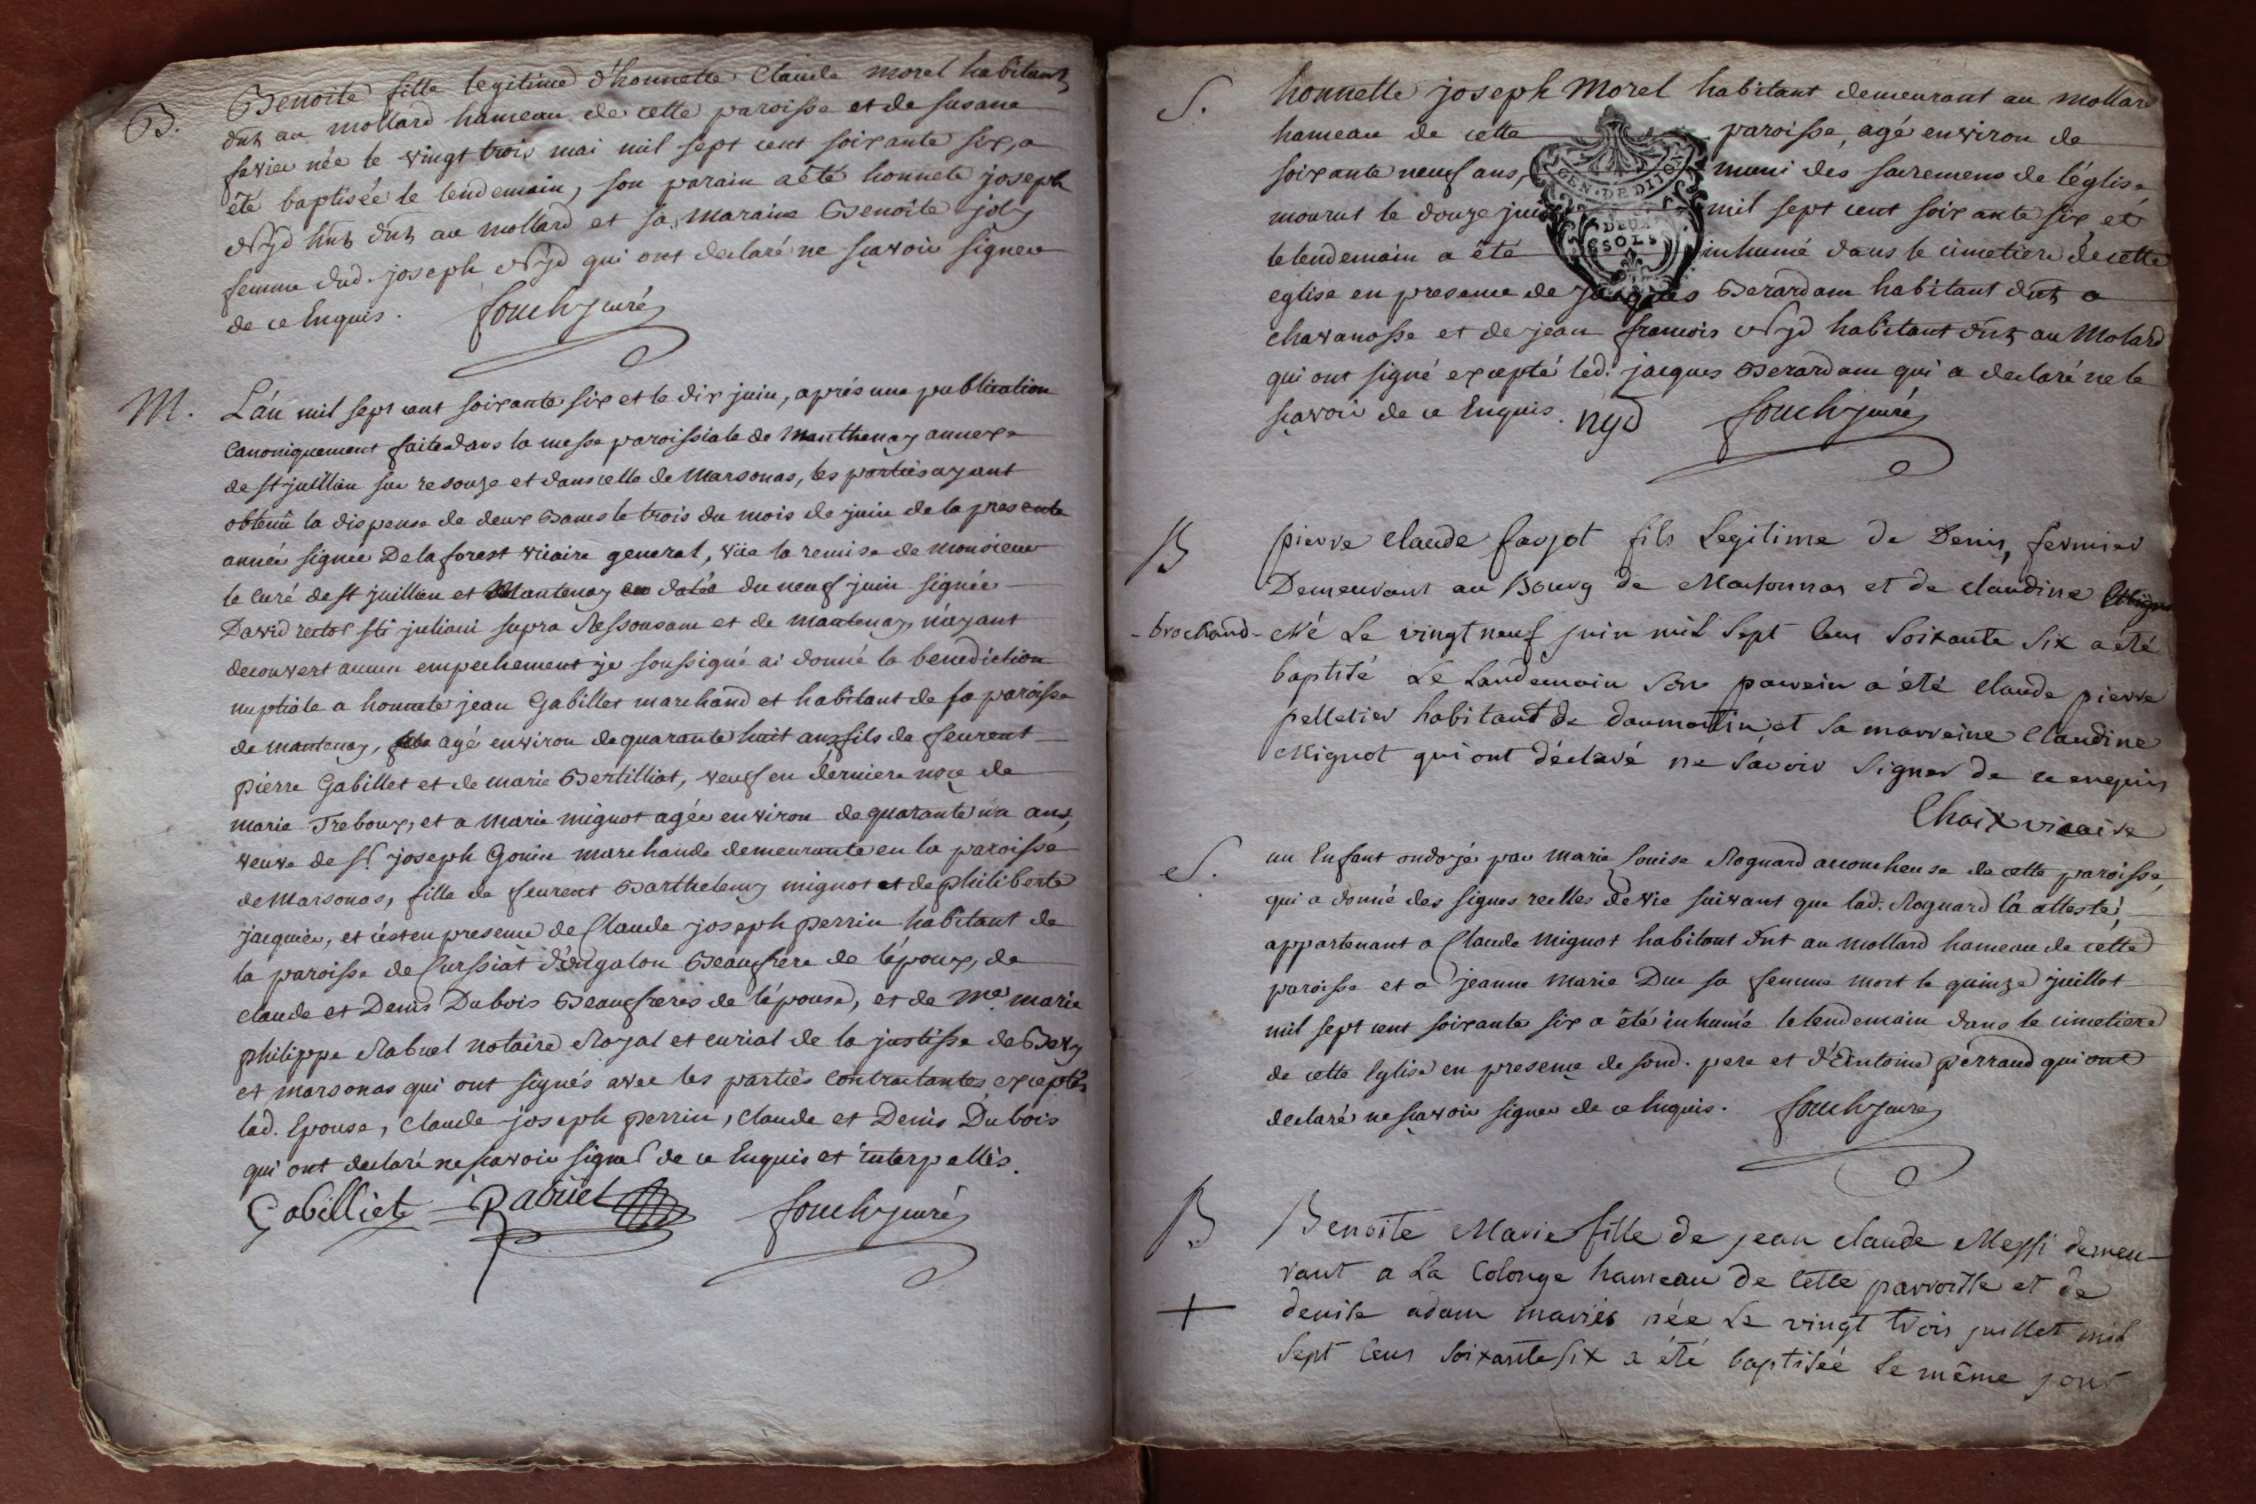 B.
Benoite fille legitime d'honnette Claude morel habitant
dnt au mollard hameau de cette paroisse et de susane
favier née le vingt trois mai mil sept cent soixante six, a
été baptisée le lendemain, son parain a été honnete joseph
Nyd hnt dnt au mollard et sa maraine Benoite joly
femme dud. joseph Nyd qui ont declaré ne sçavoir signer
de ce Enquis. fouchy curé
M.
L'án mil sept cent soixante six et le dix juin, aprés une publication
Canoniquement faite dans la messe paroissiale de Manthenay annexe
de st juillien sur resouze et dans celle de Marsonas, les parties ayant
obtenû la dispense de deux bans le trois du mois de juin de la presente
année signée De la forest vicaire general, vûe la remise de monsieur
le Curé de st juillien et Mantenay en datée du neuf juin signée
David rector sti juliani supra Ressousam et de mantenay, n'ayant
decouvert aucun empechement je soussigné ai donné la benediction
nuptiale a honnete jean Gabillet marchand et habitant de sa paroisse
de mantenay, agé environ de quarante huit ans fils de feurent
pierre Gabillet et de marie Bertilliat, veuf en derniere noçe de
marie Treboux, et a Marie mignot agée environ de quarante un ans,
veuve de sr. joseph Gonin marchande demeurante en la paroisse
de Marsonas, fille de feurent Barthelemy mignot et de philiberte
jacquier, et c'est en presence de Claude joseph perrin habitant de
la paroisse de Curssiat d'ongalon Beaufrere de l'époux, de
Claude et Denis Dubois Beaufreres de l'épouse, et de Me marie
philippe Rabuel notaire Royal et curial de la justisse de Bery
et marsonas qui ont signés avec les parties Contractantes exceptés
lad. Epouse, Claude joseph perrin, Claude et Denis Dubois
qui ont declaré ne sçavoir signer de ce Enquis et interpellés.
Gabilliet Rabuel fouchy curé
S.
honnette joseph Morel habitant demeurant au mollard
hameau de cette paroisse, agé environ de
soixante neuf ans, muni des sacremens de l'église
mourut le douze juin mil sept cent soixante six et
le lendemain a été inhumé dans le cimetiere de cette
GEN. DE DIJON
DEUX
SOLS
eglise en presence de jacques Berardam habitant dnt a
chavanosse et de jean francois Nyd habitant dnt au Molard
qui ont signé excepté led. jacques Berardam qui a declaré ne le
sçavoir de ce Enquis. nyd fouchy curé
B
pierre claude fayot fils Legitime de Denis, fermier
Demeurant au Bourg de Marsonnas et de claudine
- brochand - Né Le vingt neuf juin mil Sept Cens Soixante Six a été
baptisé Le Landemain Son parrein a été Claude pierre
pelletier habitant de daumartin et Sa marreine Claudine
Mignot qui ont déclaré ne Savoir Signer de ce enquis
Chaix vicaire
S.
un Enfant ondoyé par marie Louise Roguard accoucheuse de cette paroisse,
qui a donné des signes reelles de vie suivant que lad. Roguard l'a attesté,
appartenant a Claude mignot habitant dnt au mollard hameau de cette
paroisse et a jeanne Marie Duc sa femme mort le quinze juillet
mil sept cent soixante six a été inhumé le lendemain dans le cimetiere
de cette Eglise en presence de sond. pere et d'Antoine perraud qui ont
declaré ne sçavoir signer de ce Enquis. fouchy curé
B
Benoite Marie fille de jean claude Meyssi demeu-
rant a La Colonge hameau de Cette parroisse et de
+
denise adam mariés née Le vingt trois juillet mil
Sept Cens Soixante Six a été baptisée Le même jour